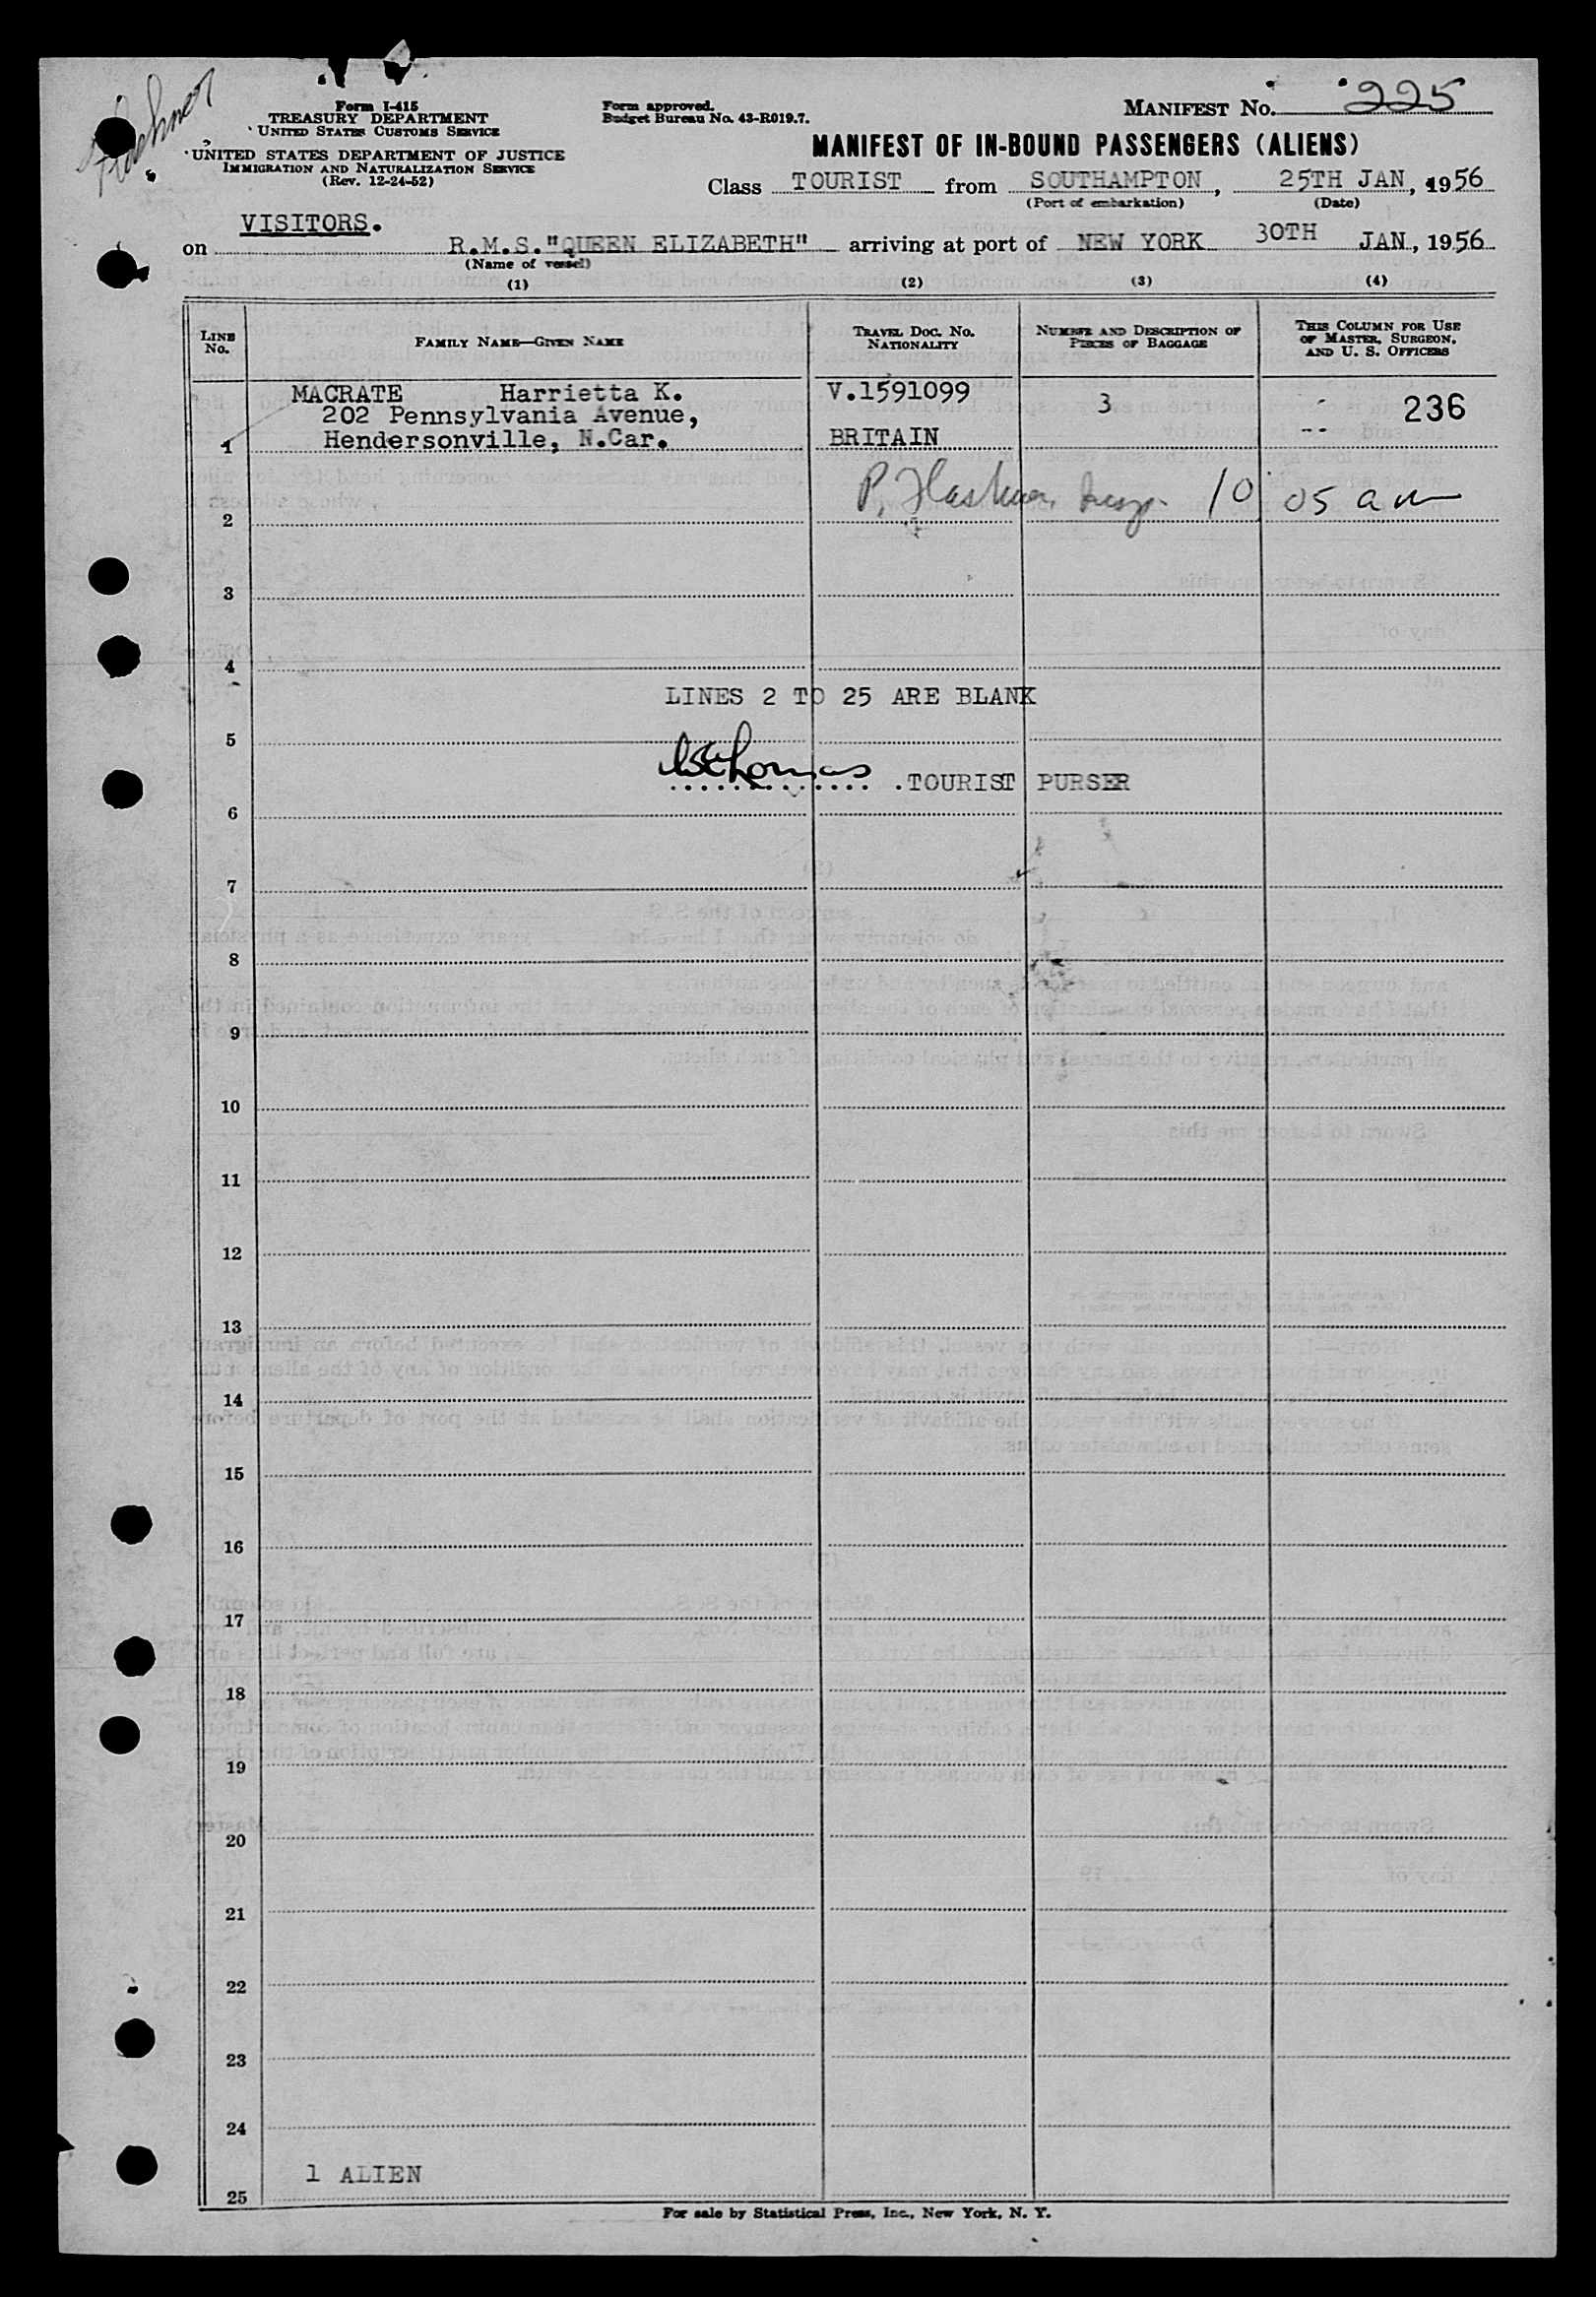 Form I-415
TREASURY DEPARTMENT
UNITED STATES CUSTOMS SERVICE
UNITED STATES DEPARTMENT OF JUSTICE
IMMIGRATION AND NATURALIZATION SERVICE
(Rev. 12-24-52)
Form approved.
Budget Bureau No. 43-R019.7.
MANIFEST No. 225
MANIFEST OF IN-BOUND PASSENGERS (ALIENS)
Class TOURIST from SOUTHAMPTON, 25TH JAN, 1956
(Port of embarkation) (Date)
VISITORS.
on R.M.S."QUEEN ELIZABETH" arriving at port of NEW YORK 30TH JAN., 1956
(Name of vessel)
(1) (2) (3) (4)
LINE No. FAMILY NAME—GIVEN NAME TRAVEL DOC. No. NATIONALITY NUMBER AND DESCRIPTION OF PIECES OF BAGGAGE THIS COLUMN FOR USE OF MASTER, SURGEON, AND U. S. OFFICERS
MACRATE Harrietta K. V.1591099 3 236
202 Pennsylvania Avenue,
1 Hendersonville, N.Car. BRITAIN
2 P. Insp. 10 05 am
3
4
LINES 2 TO 25 ARE BLANK
5
Thomas .TOURIST PURSER
6
7
8
9
10
11
12
13
14
15
16
17
18
19
20
21
22
23
24
1 ALIEN
25
For sale by Statistical Press, Inc., New York, N. Y.